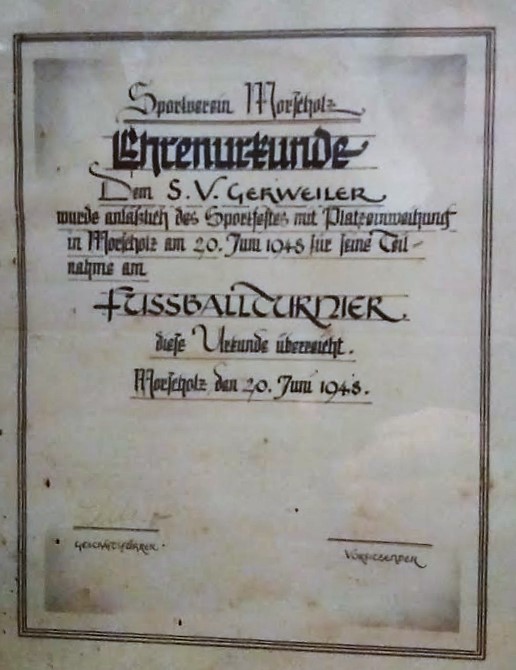 Sportverein Morscholz
Ehrenurkunde
Dem S. V. GERWEILER
wurde anlässlich des Sportfestes mit Platzeinweihung
in Morscholz am 20. Juni 1948 für seine Teil-
nahme am
FUSSBALLTURNIER.
diese Urkunde überreicht.
Morscholz, den 20. Juni 1948.
GESCHÄFTSFÜHRER.
VORSITZENDER